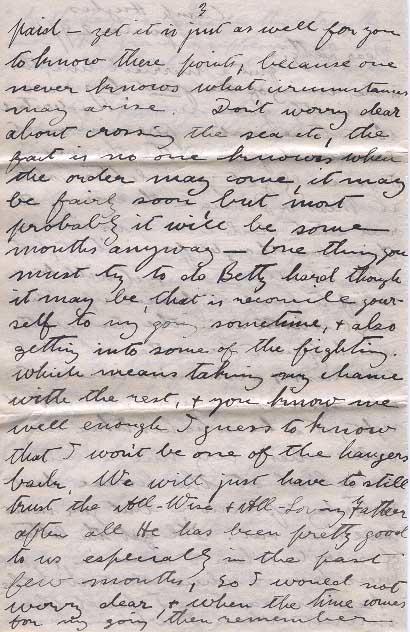 3
paid – yet it is just as well for you
to know these points, because one
never knows what circumstances
may arise. Don't worry dear
about crossing the sea etc, the
fact is no one knows when
the order may come, it may
be fairly soon but most
probably it will be some
months anyway – One thing you
must try to do Betty hard though
it may be, that is reconcile your-
self to my going sometime, & also
getting into some of the fighting.
Which means taking my chance
with the rest, & you know me
well enough I guess to know
that I won't be one of the hangers
back. We will just have to still
trust the All-Wise & All-Loving Father
after all He has been pretty good
to us especially in the past
few months, so I would not
worry dear, & when the time comes
for my going then remember